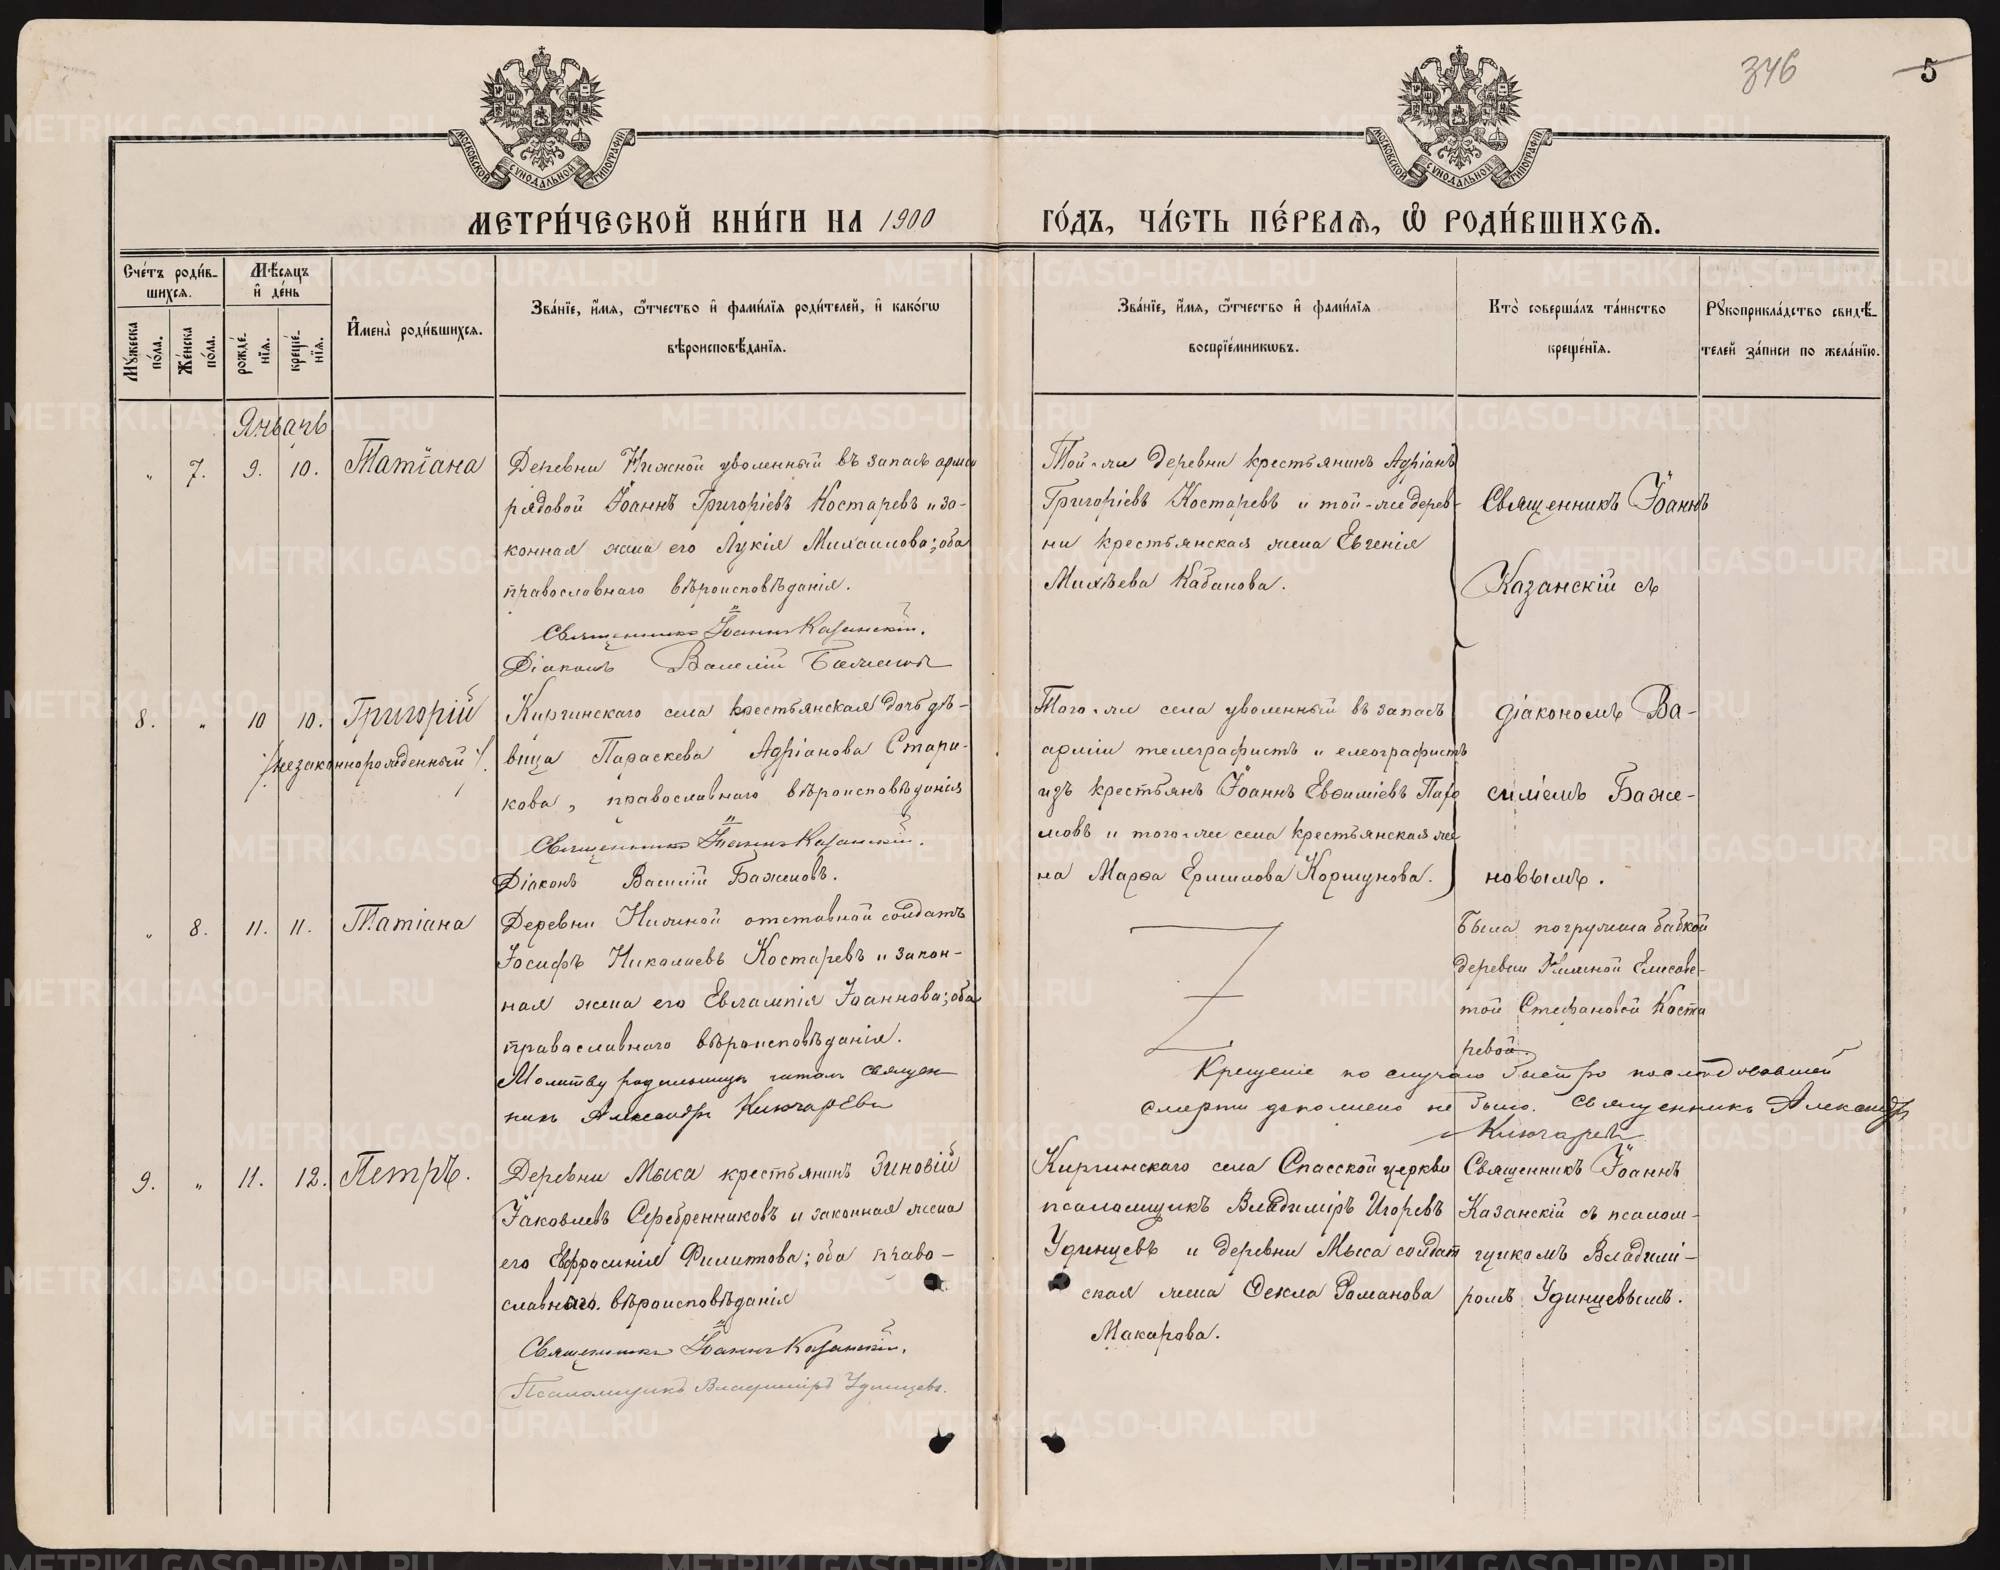 346
5
МОСКОВСКОЙ СѴНОДАЛЬНОЙ ТИПОГРАФІИ
МОСКОВСКОЙ СѴНОДАЛЬНОЙ ТИПОГРАФІИ
МЕТРИ́ЧЕСКОЙ КНИ́ГИ НА 1900
ГО́ДЪ, ЧА́СТЬ ПЕ́РВАѦ, Ѡ҆ РОДИ́ВШИХСѦ.
Сче́тъ роди́в-
шихсѧ.
Мꙋ́жеска
по́ла.
Же́нска
по́ла.
Мѣ́сѧцъ
и҆ де́нь
рожде́-
нїѧ.
креще́-
нїѧ.
И҆мена̀ роди́вшихсѧ.
Зва́нїе, и҆́мѧ, ѻ҆́тчество и҆ фами́лїѧ роди́телей, и҆ како́гѡ
вѣроисповѣ́данїѧ.
Зва́нїе, и҆́мѧ, ѻ҆́тчество и҆ фами́лїѧ
воспрїе́мникѡвъ.
Кто̀ соверша́лъ та́инство
креще́нїѧ.
Рꙋкоприкла́дство свидѣ́-
телей за́писи по жела́нїю.
Январь
" 7. 9. 10. Татіана
Деревни Нижной уволенный въ запасъ арміи
рядовой Іоаннъ Григоріевъ Костаревъ и за-
конная жена его Лукія Михаилова; оба
православнаго вѣроисповѣданія.
Священникъ Іоаннъ Казанскій.
Діаконъ Василій Баженовъ
Той-же деревни крестьянинъ Адріанъ
Григоріевъ Костаревъ и той-же дерев-
ни крестьянская жена Евгенія
Михѣева Кабанова.
Священникъ Іоаннъ
Казанскій съ
8. " 10 10. Григорій
/незаконнорожденный/.
Киргинскаго села крестьянская дочь дѣ-
вица Параскева Адріанова Стари-
кова, православнаго вѣроисповѣданія
Священникъ Іоаннъ Казанскій.
Діаконъ Василій Баженовъ.
Того-же села уволенный въ запасъ
арміи телеграфистъ и
изъ крестьянъ Іоаннъ Евѳиміевъ Пахо
мовъ и того-же села крестьянская же
на Марѳа Ермилова Коршунова.
діакономъ Ва-
силіемъ Баже-
новымъ.
" 8. 11. 11. Татіана
Деревни Нижной отставной солдатъ
Іосифъ Николаевъ Костаревъ и закон-
ная жена его Евлампія Іоаннова; оба
православнаго вѣроисповѣданія.
Молитву родильницѣ читалъ священ
никъ Александръ Ключаревъ
Была погружена бабкой
деревни Нижной Елисаве-
той Стефановой Коста
ревой.
Крещеніе по случаю быстро послѣдовавшей
смерти дополнено не было. Священникъ Александръ
Ключаревъ
9. " 11. 12. Петръ.
Деревни Мыса крестьянинъ Зиновій
Іаковлевъ Серебренниковъ и законная жена
его Евфросинія Филиппова; оба право-
славнаго вѣроисповѣданія
Священникъ Іоаннъ Казанскій.
Псаломщикъ Владиміръ Удинцевъ.
Киргинскаго села Спасской церкви
псаломщикъ Владиміръ Игоревъ
Удинцевъ и деревни Мыса солдат
ская жена Ѳекла Романова
Макарова.
Священникъ Іоаннъ
Казанскій съ псалом-
щикомъ Владимі-
ромъ Удинцевымъ.
METRIKI.GASO-URAL.RU